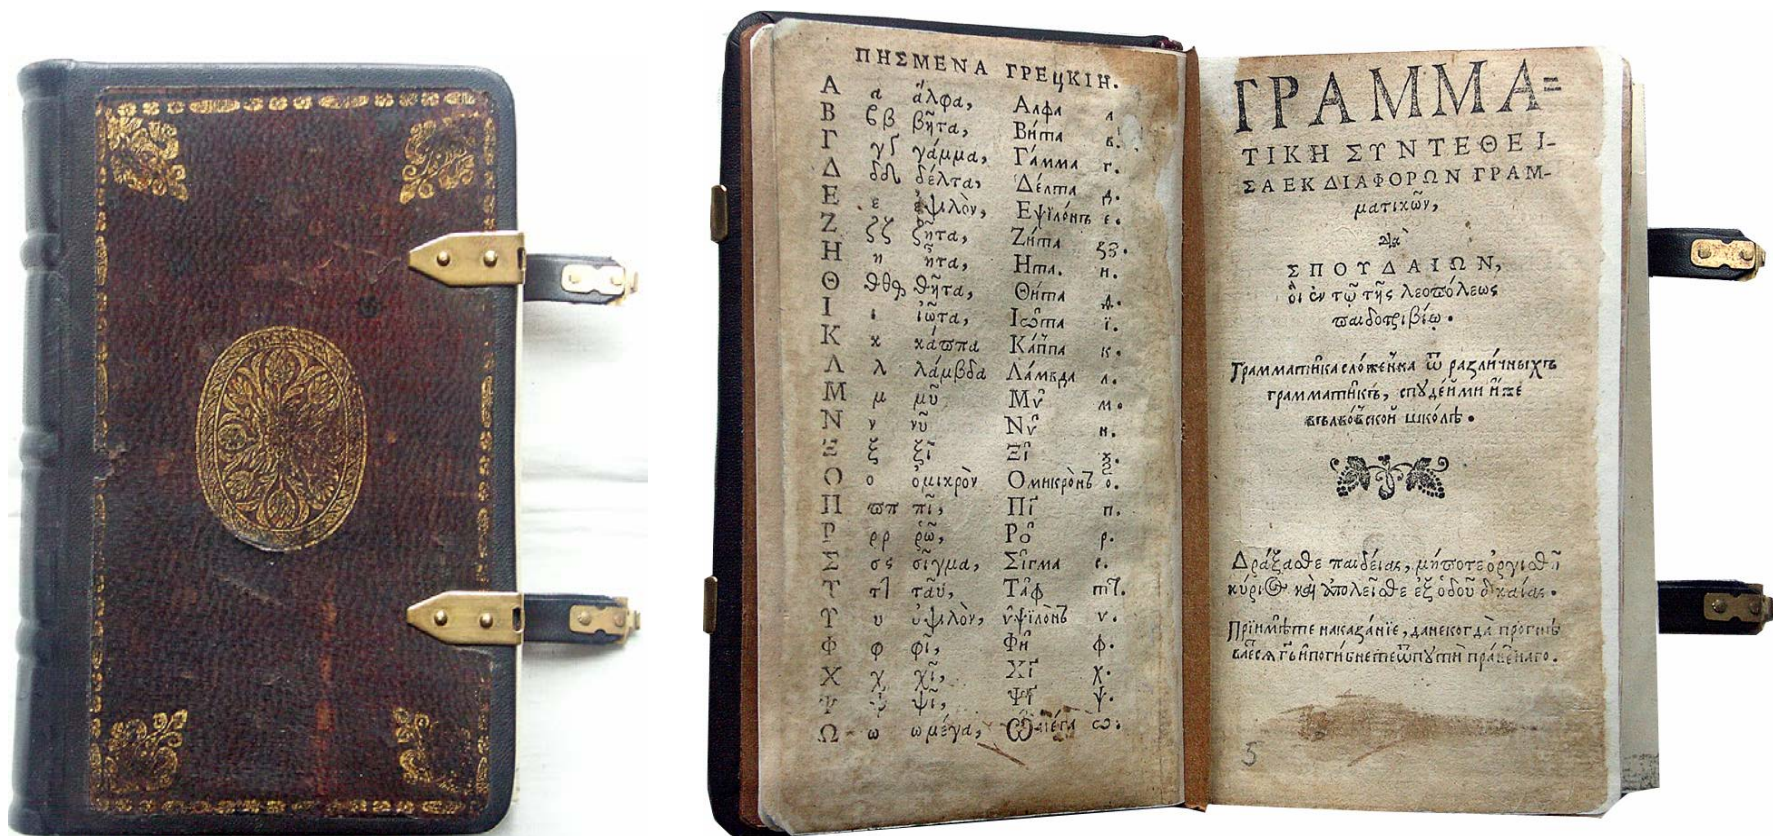 ПНСМЕNА ГРЕЦКІН.
Α α ἄλφα, Алфа а
Β ϐβ βῆτα, Вита в.
Γ γ γάμμα, Гамма г.
Δ δ δέλτα, Делта д.
Ε ε ἐψιλὸν, Еѱілонъ е.
Ζ ζζ ζῆτα, Зита ѕз.
Η η ἦτα, Ита. и.
Θ ϑθ ϑῆτα, Ѳита ѳ.
Ι ι ἰῶτα, Іѡта ї.
Κ κ κάϖπα Каппа к.
Λ λ λάμβδα Ламвда л.
Μ μ μῦ Мѵ м.
Ν ν νῦ Нѵ н.
Ξ ξ ξῖ Ѯі ѯ.
Ο ο ὀμικρὸν Омикронъ о.
Π ϖπ πῖ, Пі п.
Ρ ρρ ῥῶ, Ро р.
Σ σς σῖγμα, Сігма с.
Τ τ ταῦ, Таф т.
Υ υ ὐψιλὸν, ѵѱілонъ ѵ.
Φ φ φῖ, Фи ф.
Χ χ χῖ, Хі х.
Ψ ψ ψῖ, Ѱі ѱ.
Ω ω ωμέγα, Ѡмега ѡ.
ΓΡΑΜΜΑ=
ΤΙΚΗ ΣΥΝΤΕΘΕΙ-
ΣΑ ΕΚ ΔΙΑΦΟΡΩΝ ΓΡΑΜ-
ματικῶν,
ΣΠΟΥΔΑΙΩΝ,
οἱ ἐν τῷ τῆς λεοϖόλεως
ϖαιδοτριβίῳ.
Грамматїка сложенна ѿ различныхъ
грамматикъ, спꙋдейми иже
въ львовской школѣ.
Δράξαϑε παιδείας, μήϖοτε ὀργιϑῆ
κύριος καὶ ἀπολεῖϑε ἐξ ὁδοῦ δικαίας.
Прїимѣте наказанїе, да некогда прогнѣ
ваетсѧ гь и погибнете ѿ пꙋти праведнаго.
5